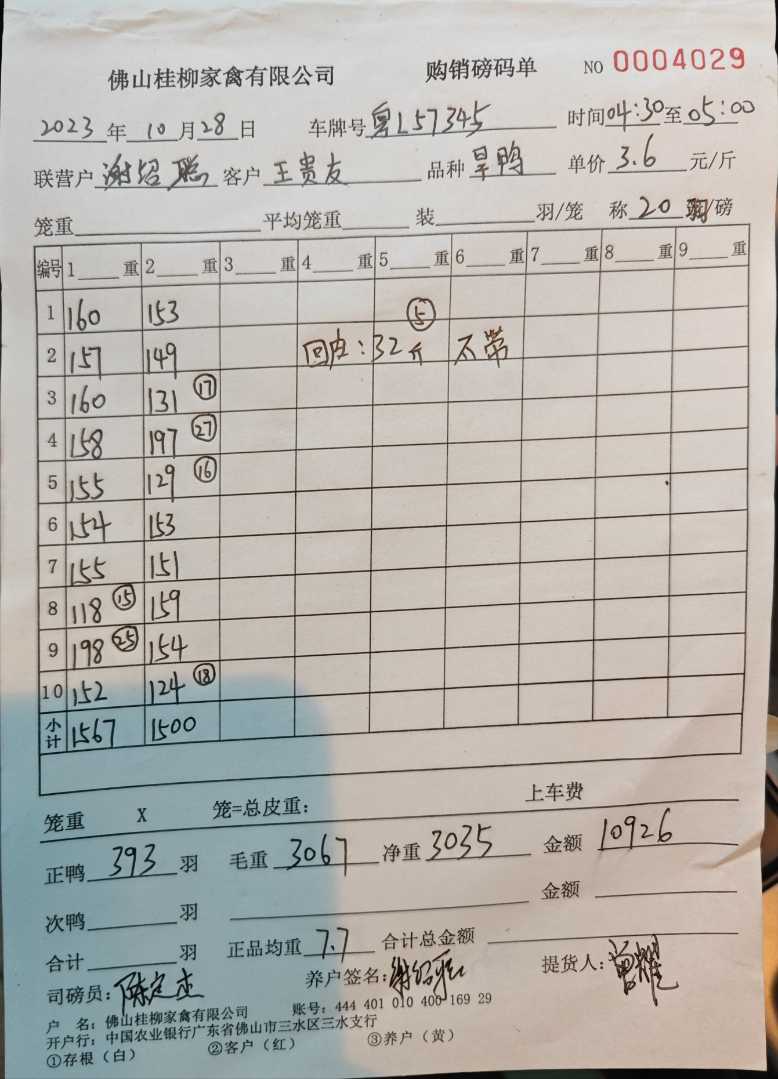 佛山桂柳家禽有限公司 购销磅码单 NO 0004029
2023年10月28日 车牌号粤L57345 时间04:30至05:00
联营户谢绍聪 客户王贵友 品种旱鸭 单价3.6元/斤
笼重 平均笼重 装 羽/笼 称20羽/磅
编号 1 重 2 重 3 重 4 重 5 重 6 重 7 重 8 重 9 重
1 160 153 ⑤
2 157 149 回皮:32斤 不带
3 160 131 ⑰
4 158 197 ㉗
5 155 129 ⑯
6 154 153
7 155 151
8 118 ⑮ 159
9 198 ㉕ 154
10 152 124 ⑱
小计 1567 1500
笼重 X 笼=总皮重: 上车费
正鸭393羽 毛重3067 净重3035 金额10926
次鸭 羽 金额
合计 羽 正品均重7.7 合计总金额
司磅员:陈定杰 养户签名:谢绍聪 提货人:曾耀
户 名:佛山桂柳家禽有限公司 账号:444 401 010 400 169 29
开户行:中国农业银行广东省佛山市三水区三水支行
①存根(白) ②客户(红) ③养户(黄)